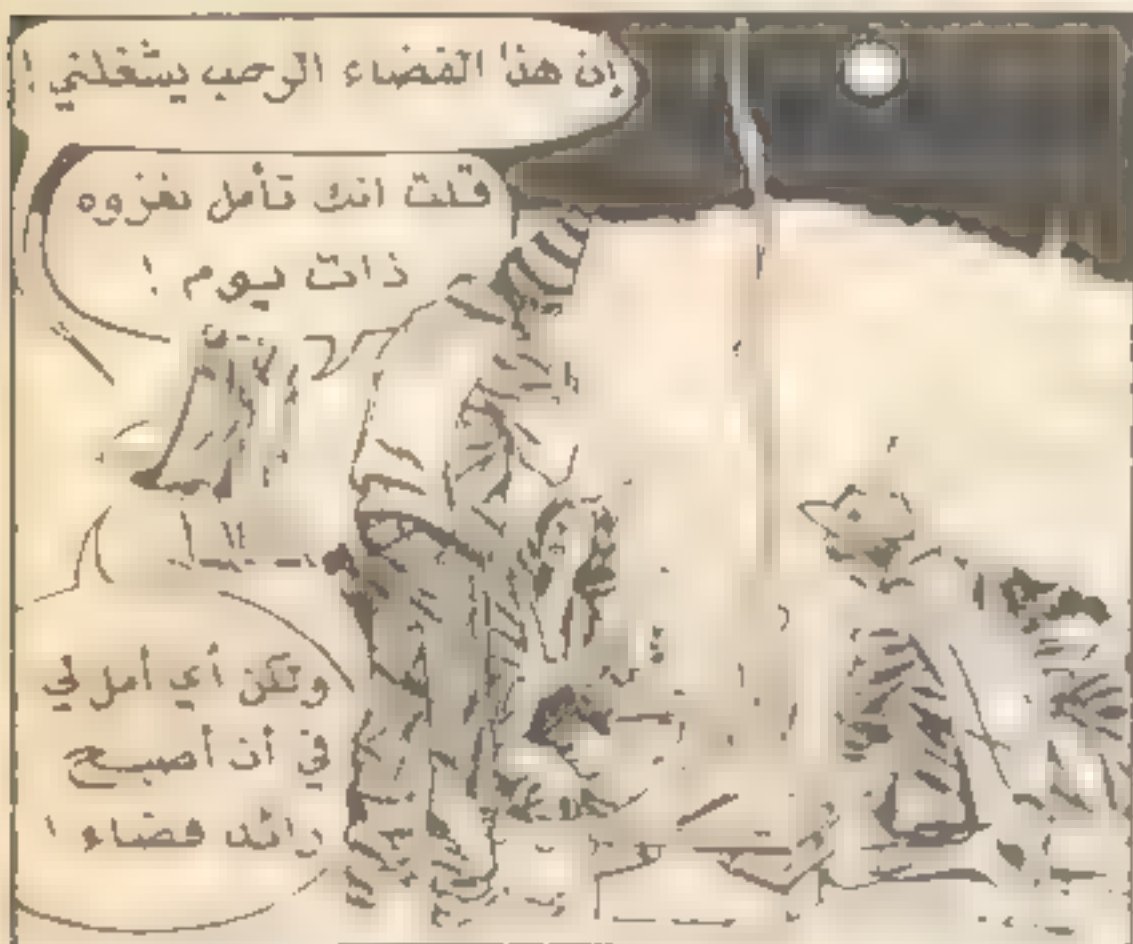 إن هذا الفضاء الرحب يشغلني !
قلت انك تأمل بغزوه
ذات يوم !
ولكن أي أمل لي
في أن أصبح
رائد فضاء !